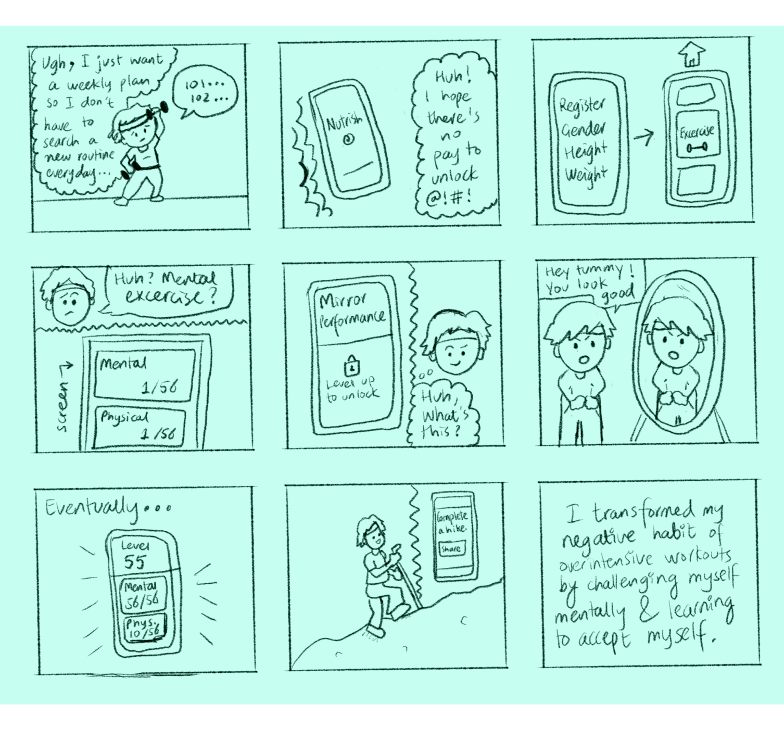 Ugh, I just want
a weekly plan
so I don't
have to
search a
new routine
everyday...
101...
102...
Nutrish
Huh!
I hope
there's
no
pay to
unlock
@!#!
Register
Gender
Height
Weight
Exercise
Huh? Mental
excercise?
screen
Mental
1/56
Physical
1/56
Mirror
Performance
Level up
to unlock
Huh,
What's
this?
Hey tummy!
You look
good
Eventually...
Level
55
Mental
56/56
Phys.
10/56
Complete
a hike.
Share
I transformed my
negative habit of
overintensive workouts
by challenging myself
mentally & learning
to accept myself.